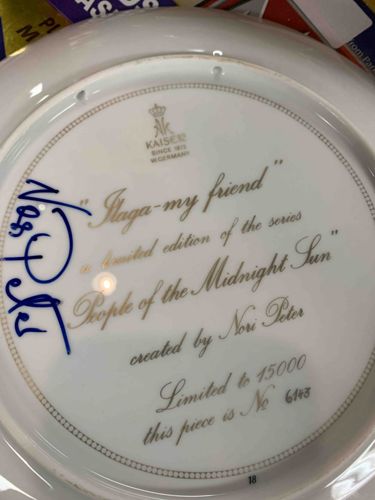 KAISER
SINCE 1872
W.GERMANY
"Ilaga-my friend"
a limited edition of the series
People of the Midnight Sun"
created by Nori Peter
Limited to 15000
this piece is No 6143
18
Nori Peter